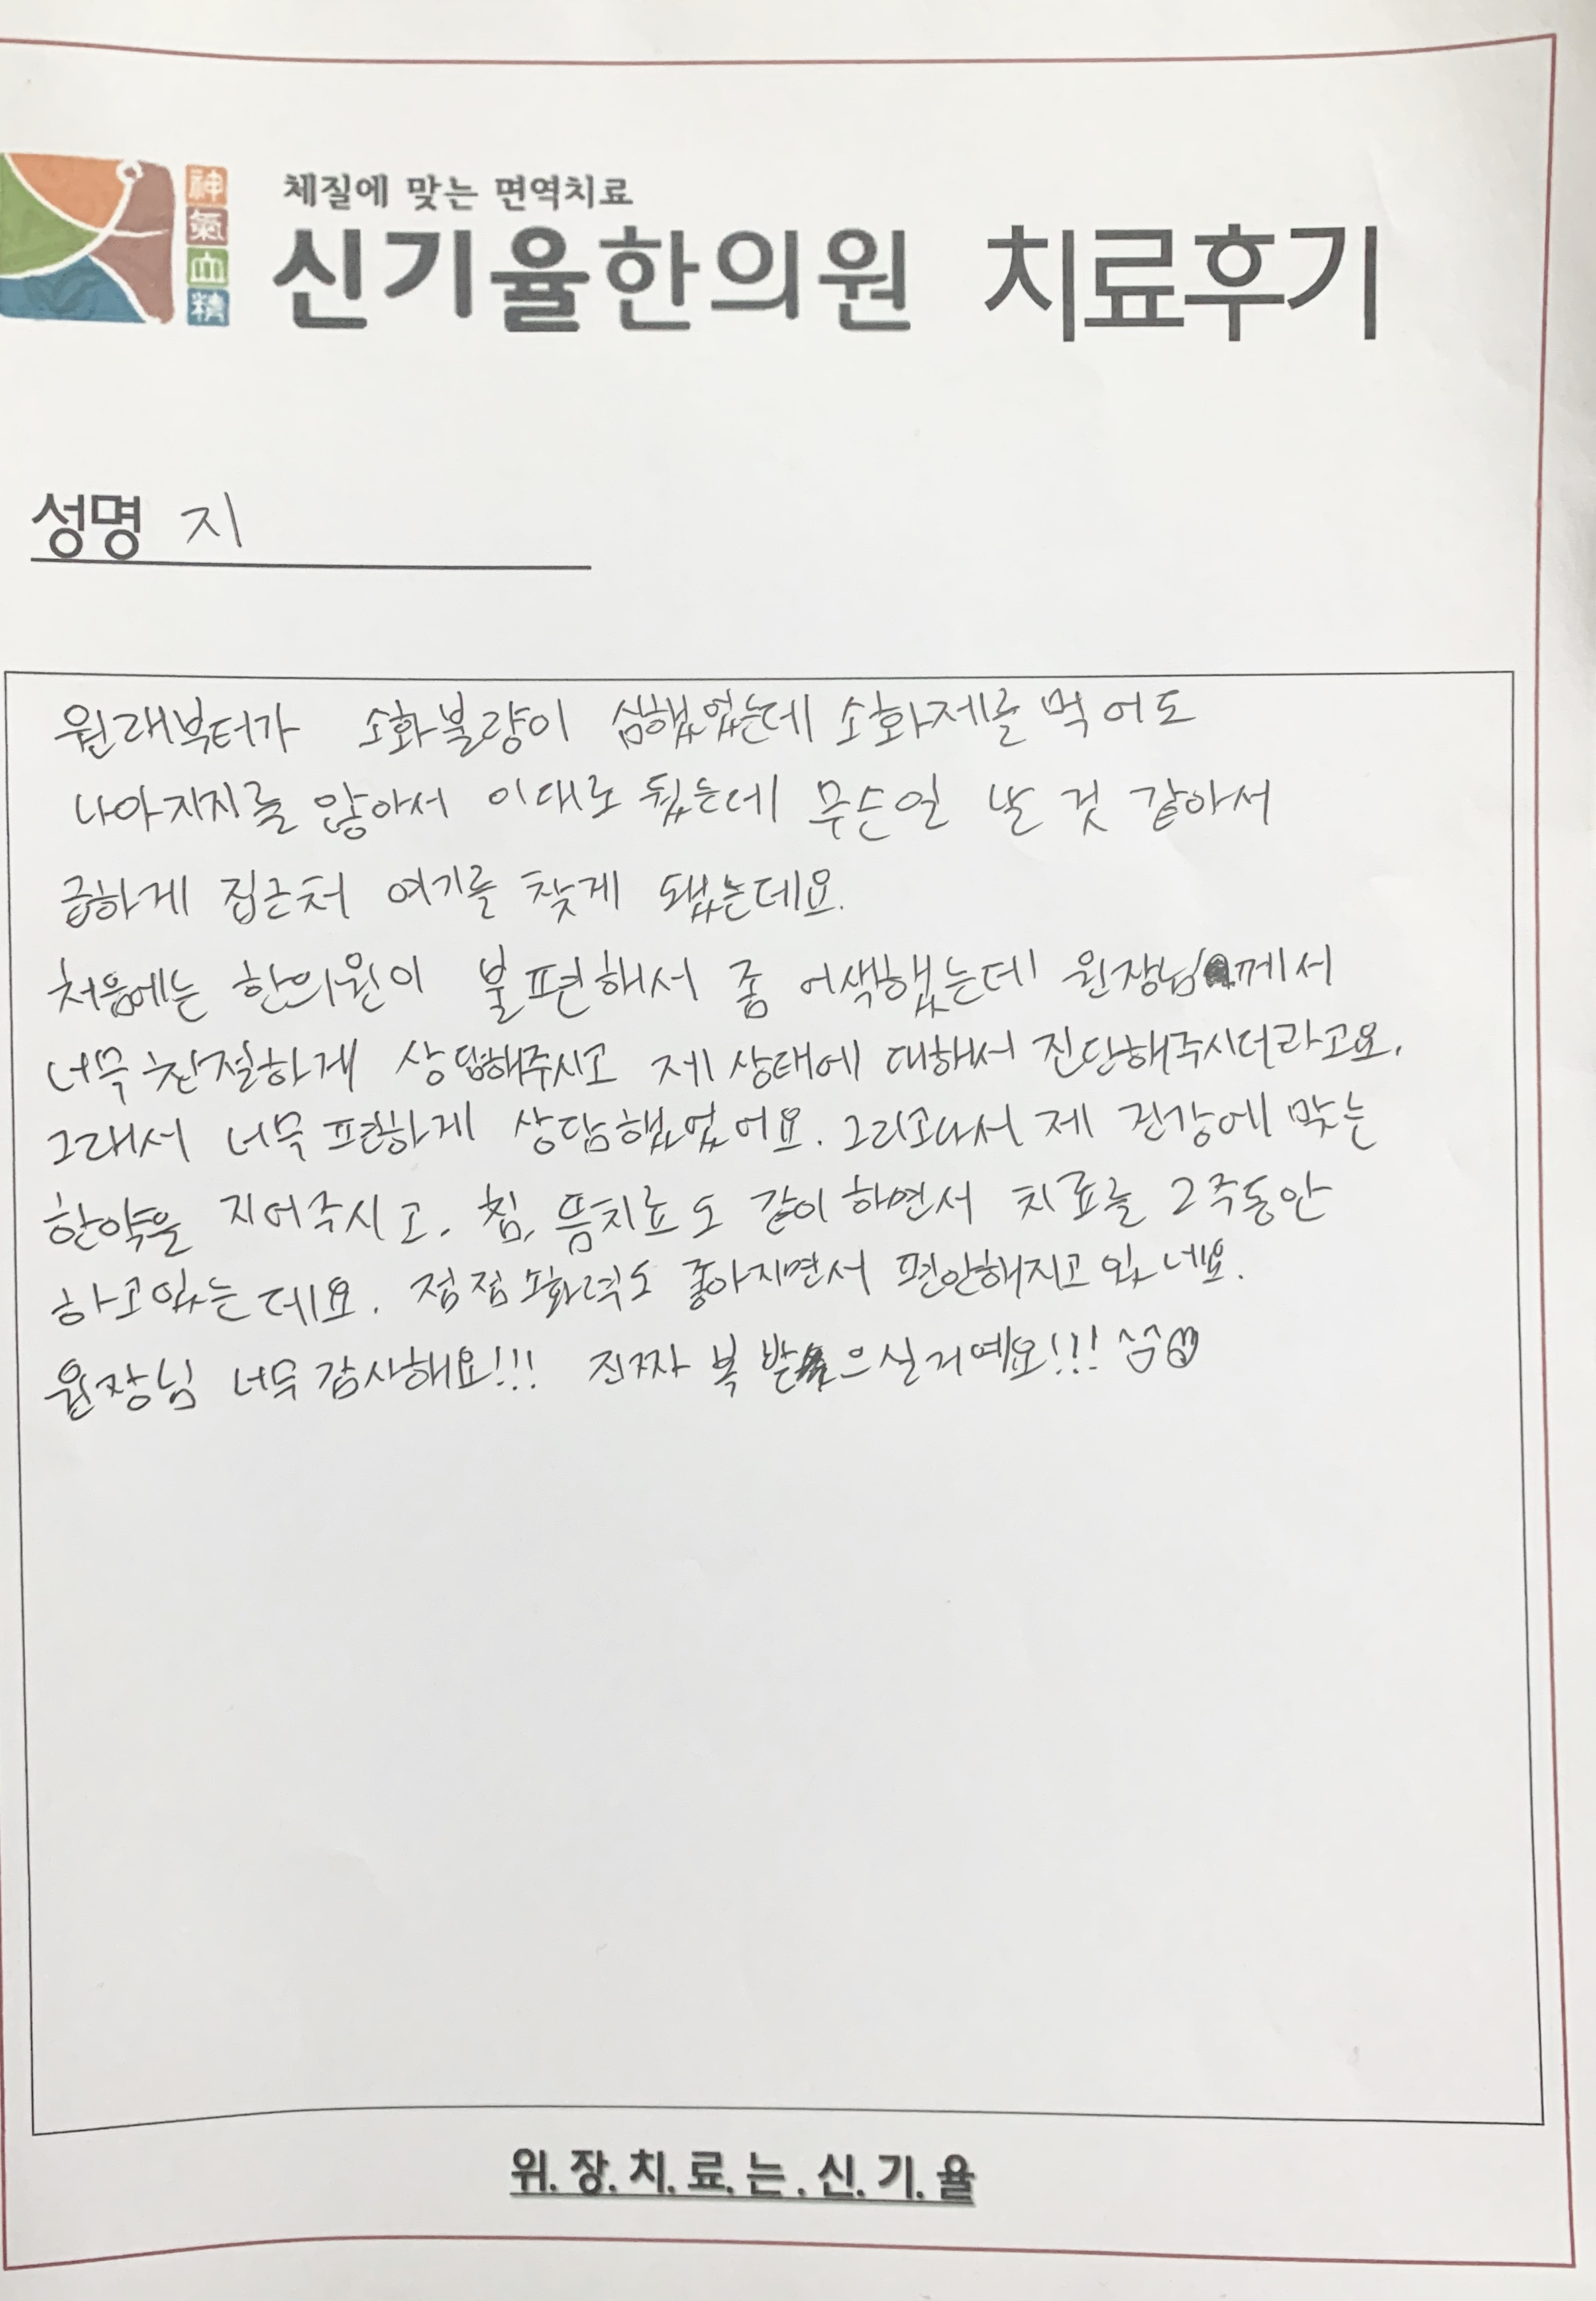 神氣血精
체질에 맞는 면역치료
신기율한의원 치료후기
성명 지
원래부터가 소화불량이 심했었는데 소화제를 먹어도
나아지지를 않아서 이대로 뒀는데 무슨일 날 것 같아서
급하게 집근처 여기를 찾게 됐는데요.
처음에는 한의원이 불편해서 좀 어색했는데 원장님께서
너무 친절하게 상담해주시고 제 상태에 대해서 진단해주시더라고요.
그래서 너무 편하게 상담했었어요. 그리고나서 제 건강에 맞는
한약을 지어주시고, 침, 뜸치료도 같이 하면서 치료를 2주동안
하고있는데요. 점점 소화력도 좋아지면서 편안해지고 있네요.
원장님 너무 감사해요!!! 진짜 복 받으실거예요!!! ^^
위.장.치.료.는.신.기.율